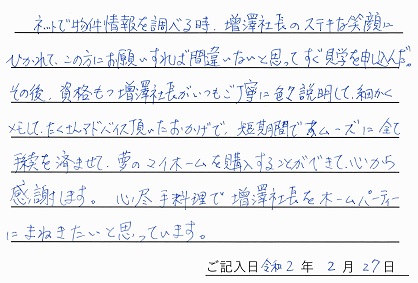 ネットで物件情報を調べる時、増澤社長のステキな笑顔に
ひかれて、この方にお願いすれば間違いないと思ってすぐ見学を申し込んだ。
その後、資格もつ増澤社長がいつもご丁寧に色々説明して、細かく
メモして、たくさんアドバイス頂いたおかげで、短期間でスムーズに全て
手続を済ませて、夢のマイホームを購入することができて、心から
感謝します。心尽手料理で増澤社長をホームパーティー
にまねきたいと思っています。
ご記入日 令和2年2月27日